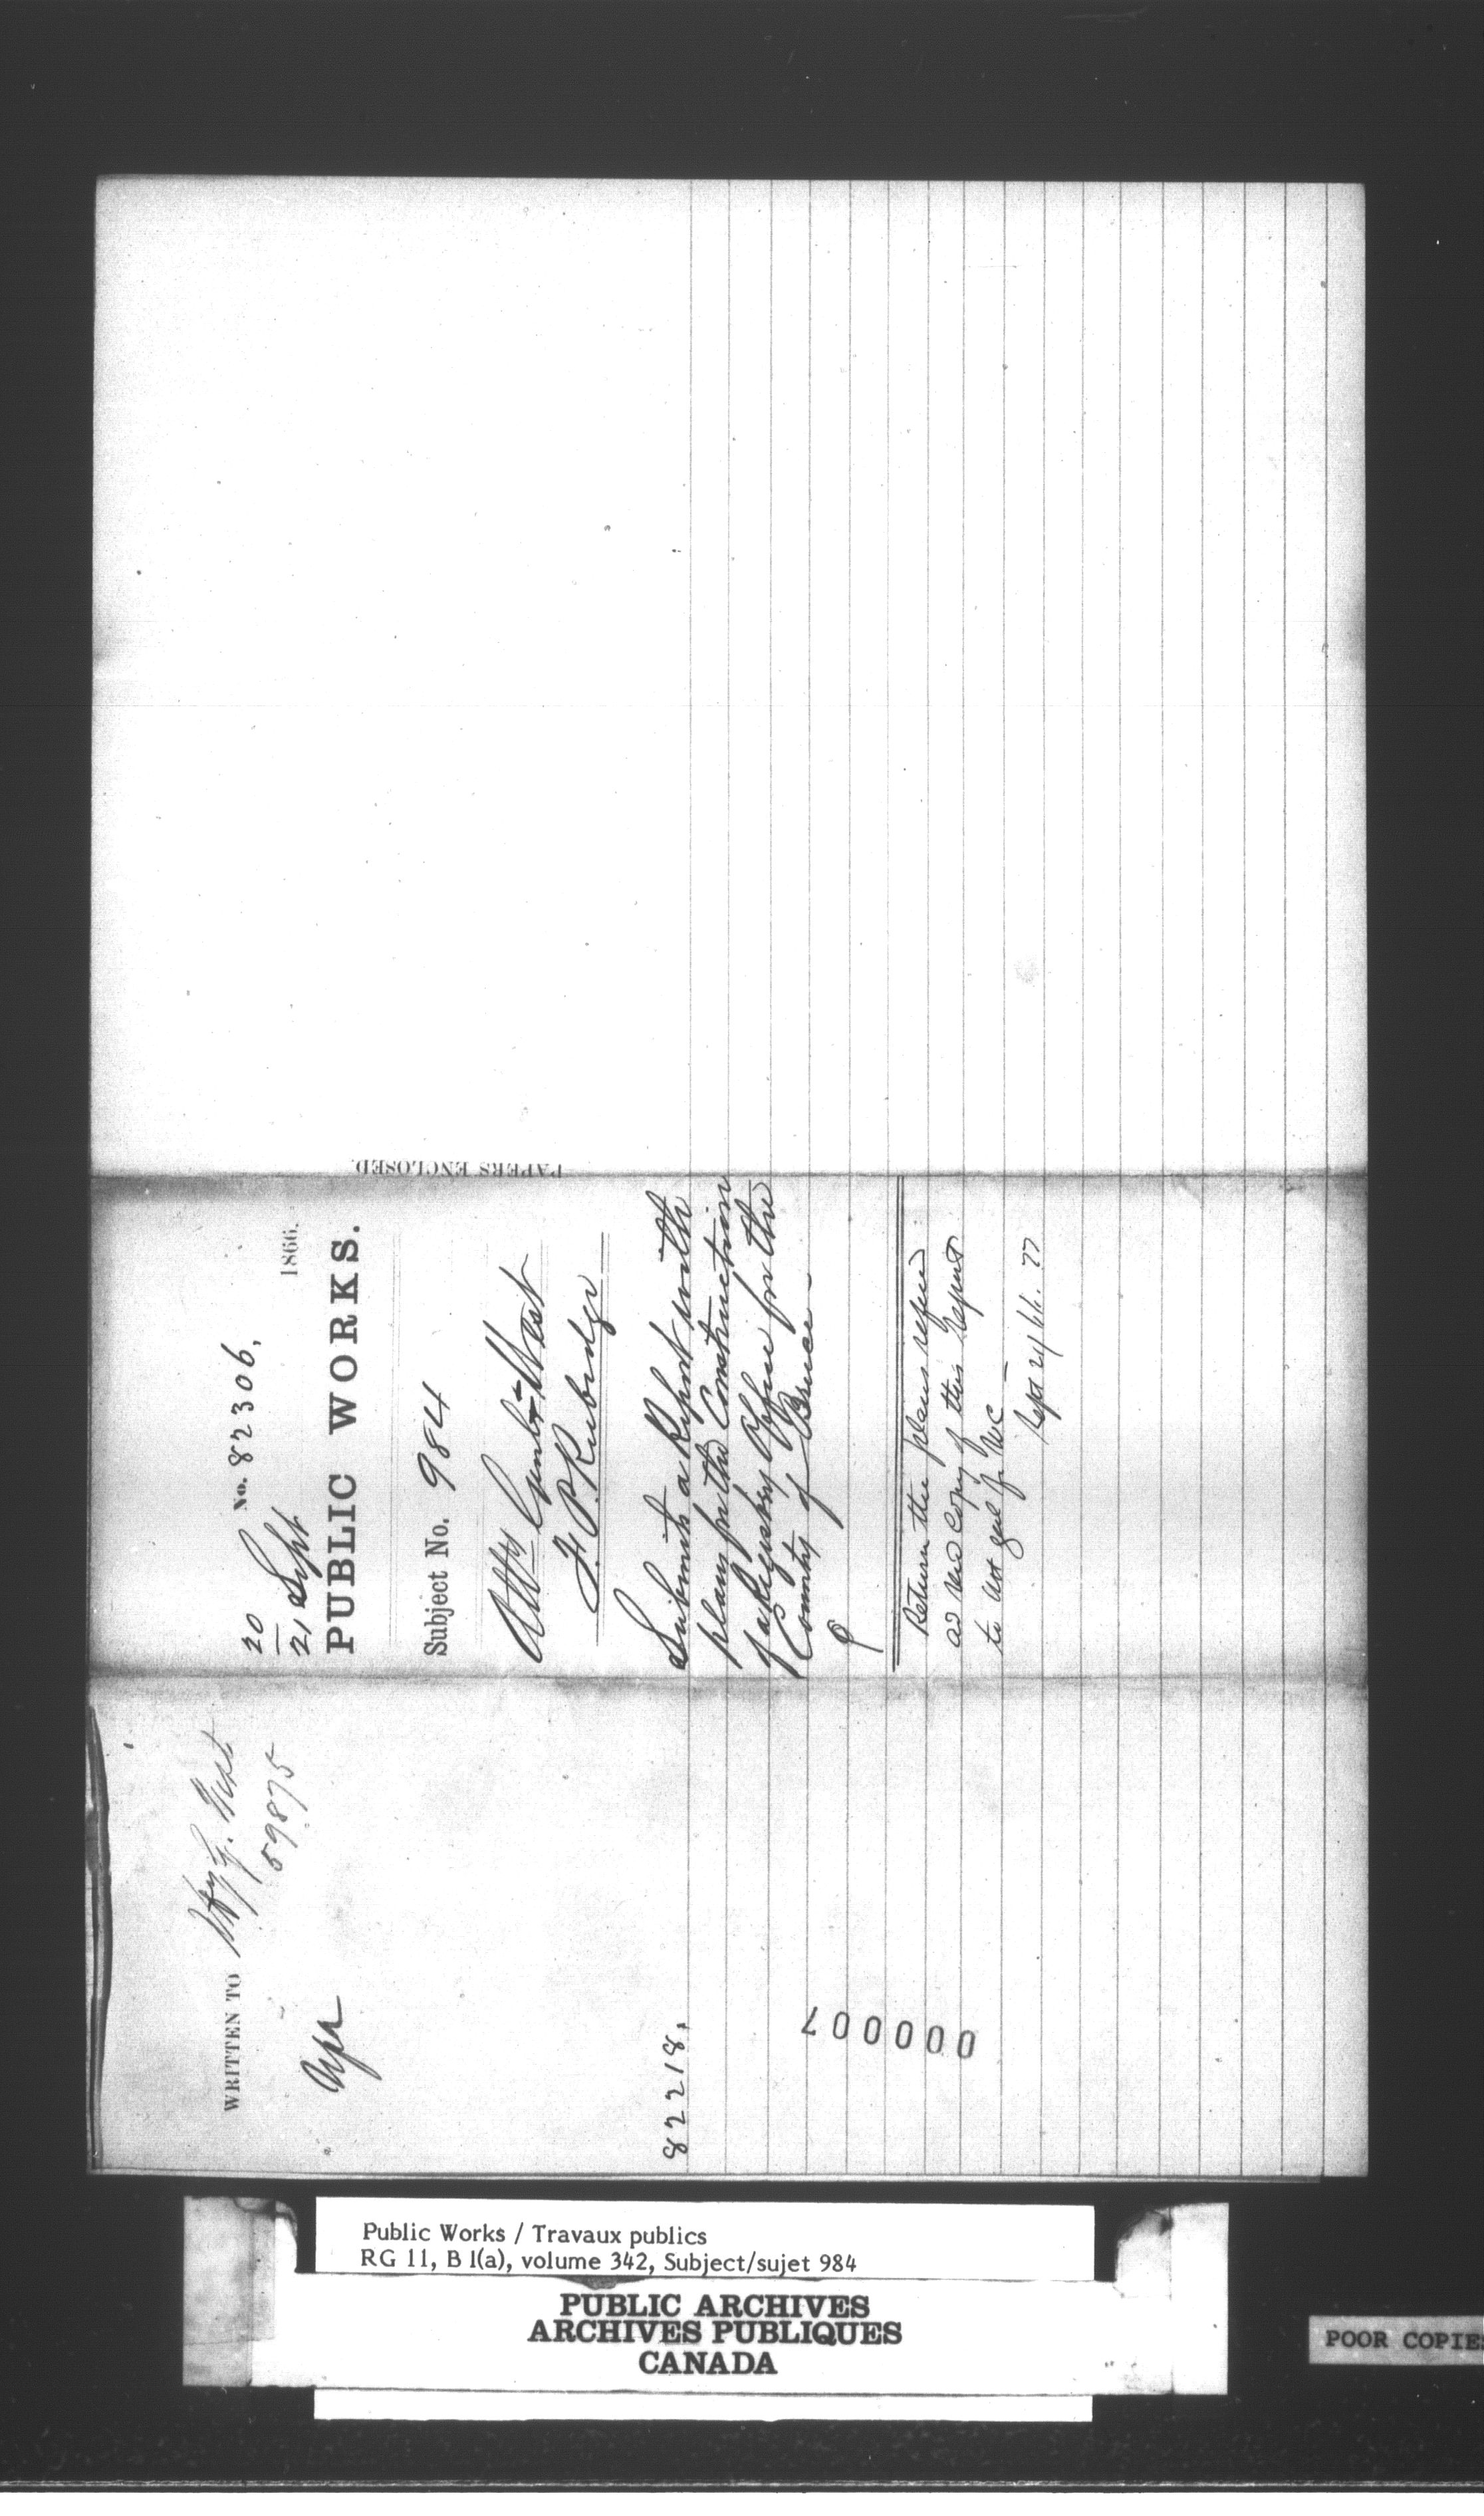 20
21 Sept
No. 82306,
1866.
PUBLIC WORKS.
Subject No. 984
Atty Genl - West
F. P. Rubidge
Submits a Report with
plans for the Construction
of a Registry Office for the
County of Bruce
Return the plans
as also copy of this Report
to Att Genl for U.C.
Sept 21/66.
PAPERS ENCLOSED.
WRITTEN TO Atty G. West
59875
82218.
000007
Public Works / Travaux publics
RG 11, B 1(a), volume 342, Subject/sujet 984
PUBLIC ARCHIVES
ARCHIVES PUBLIQUES
CANADA
POOR COPIES